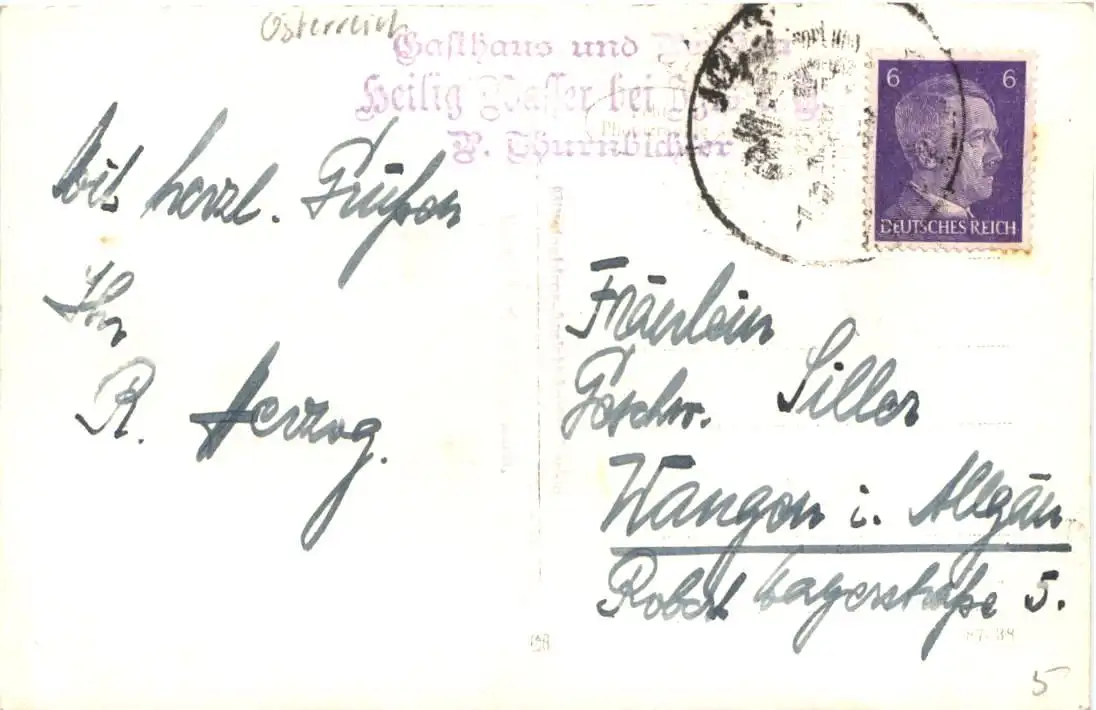 Österreich
Gasthaus und
Heilig Wasser bei
P. Thurnbichler
6 6
DEUTSCHES REICH
Mit herzl. Grüßen
Ihr
R. Herzog.
Fräulein
Geschw. Siller
Wangen i. Allgäu
Robert Wagerstraße 5.
5